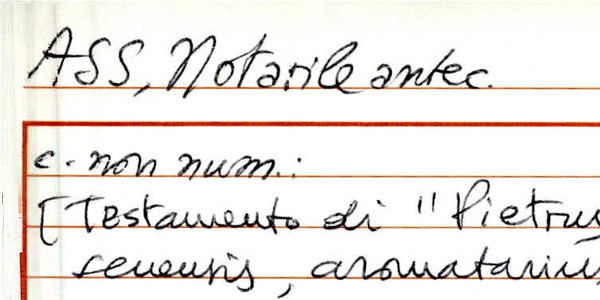 ASS, Notarile antec.
c. non num.:
[Testamento di "Pietrus
senensis, aromatarius